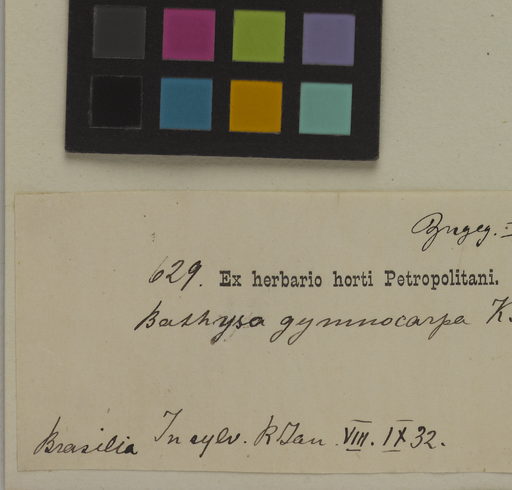 629. Ex herbario horti Petropolitani.
Bathysa gymnocarpa K.
Brasilia In sylv. R Jan. VIII. IX 32.